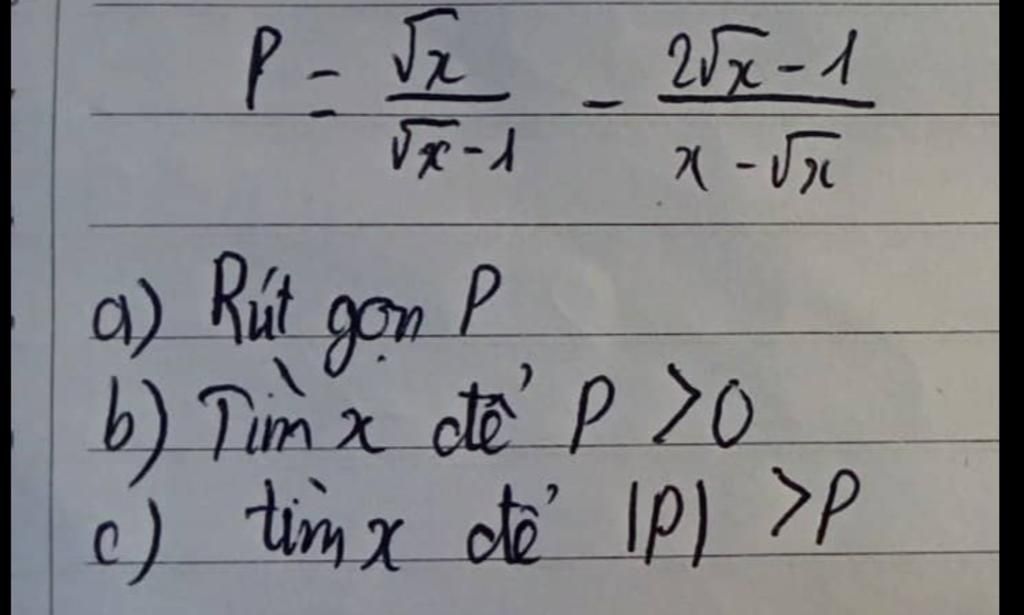 P = \frac{\sqrt{x}}{\sqrt{x}-1} - \frac{2\sqrt{x}-1}{x-\sqrt{x}}
a) Rút gọn P
b) Tìm x để P > 0
c) tìm x để |P| > P